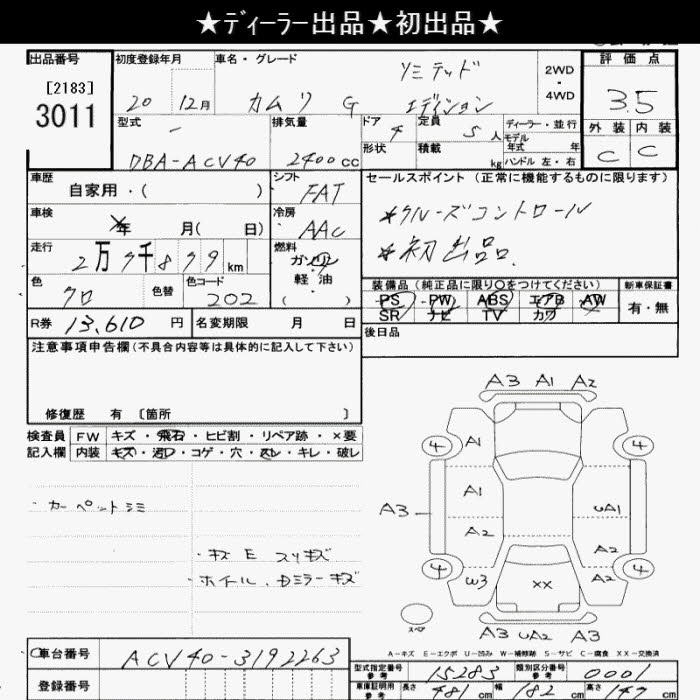 ★ディーラー出品★初出品★
出品番号
[2183]
3011
初度登録年月
20 12月
車名・グレード
カムリ G
リミテッド
エディション
2WD
・
4WD
評価点
3.5
外装 内装
C C
型式
DBA-ACV40
排気量
2400cc
ドア
4
定員
5人
形状
積載
kg
ディーラー・並行
モデル
年式 年
ハンドル 左・右
車歴
自家用・( )
シフト
FAT
セールスポイント (正常に機能するものに限ります)
*クルーズコントロール
*初出品.
車検
年 月( 日)
冷房
AAC
走行
2万7千879km
燃料
ガソリン
・
軽油
( )
色
クロ
色替
色コード
202
装備品 (純正品に限り○をつけてください)
PS PW ABS エアB AW
SR ナビ TV カワ
新車保証書
有・無
R券 13,610円
名変期限 月 日
後日品
注意事項申告欄(不具合内容等は具体的に記入して下さい)
修復歴 有 〔箇所 〕
検査員 FW キズ・飛石・ヒビ割・リペア跡・×要
記入欄 内装 キズ・汚レ・コゲ・穴・スレ・キレ・破レ
・カーペットシミ
・キズ E スリキズ
・ホイール、Dミラーキズ
A3 A1 A2
4 4
A1
A1
A3
UA1
A2
A2
4 4
W3
XX
A2
スペア
A3 UA2 A3
A-キズ E-エクボ U-凹み W-補修跡 S-サビ C-腐食 XX-交換済
車台番号
ACV40-3192263
登録番号
型式指定番号
参考
15283
類別区分番号
参考
0001
車庫証明用
参考
長さ
481cm
幅
182cm
高さ
147cm